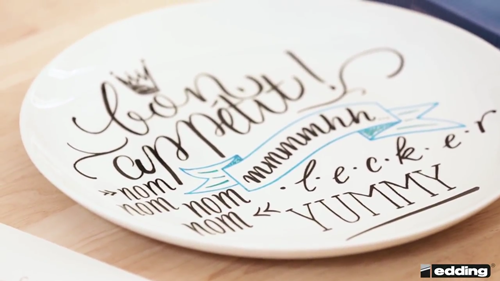 bon
appétit!
mmmmmhh
»nom
nom nom
nom «
·l·e·c·k·e·r
YUMMY
edding®